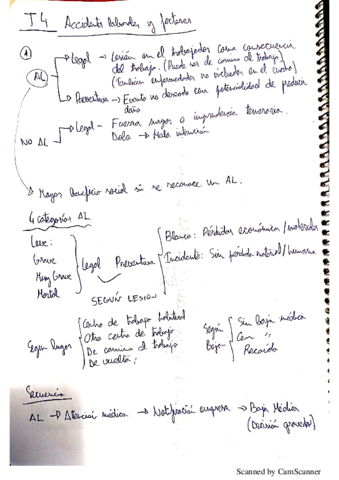 T4 Accidentes laborales y factores
①
AL → Legal → Lesión en el trabajador como consecuencia
del trabajo. (Puede ser de camino al trabajo)
(También enfermedades no incluidas en el cuadro)
→ Preventiva → Evento no deseado con potencialidad de producir
daño
NO AL → Legal → Fuerza mayor o imprudencia temeraria
Dolo → Mala intención
→ Mayor beneficio social si se reconoce un AL.
4 categorías AL
Leve:
Grave
Muy Grave
Mortal
Legal Preventiva
Blanco: Pérdidas económica/materiales
Incidente: Sin pérdida material/humana
SEGÚN LESION
Según lugar
Centro de trabajo habitual
Otro centro de trabajo
De camino al trabajo
De vuelta
Según Baja
Sin Baja médica
Con "
Recaída
Secuencia
AL → Atención médica → Notificación empresa → Baja Médica
(Decisión gravedad)
Scanned by CamScanner